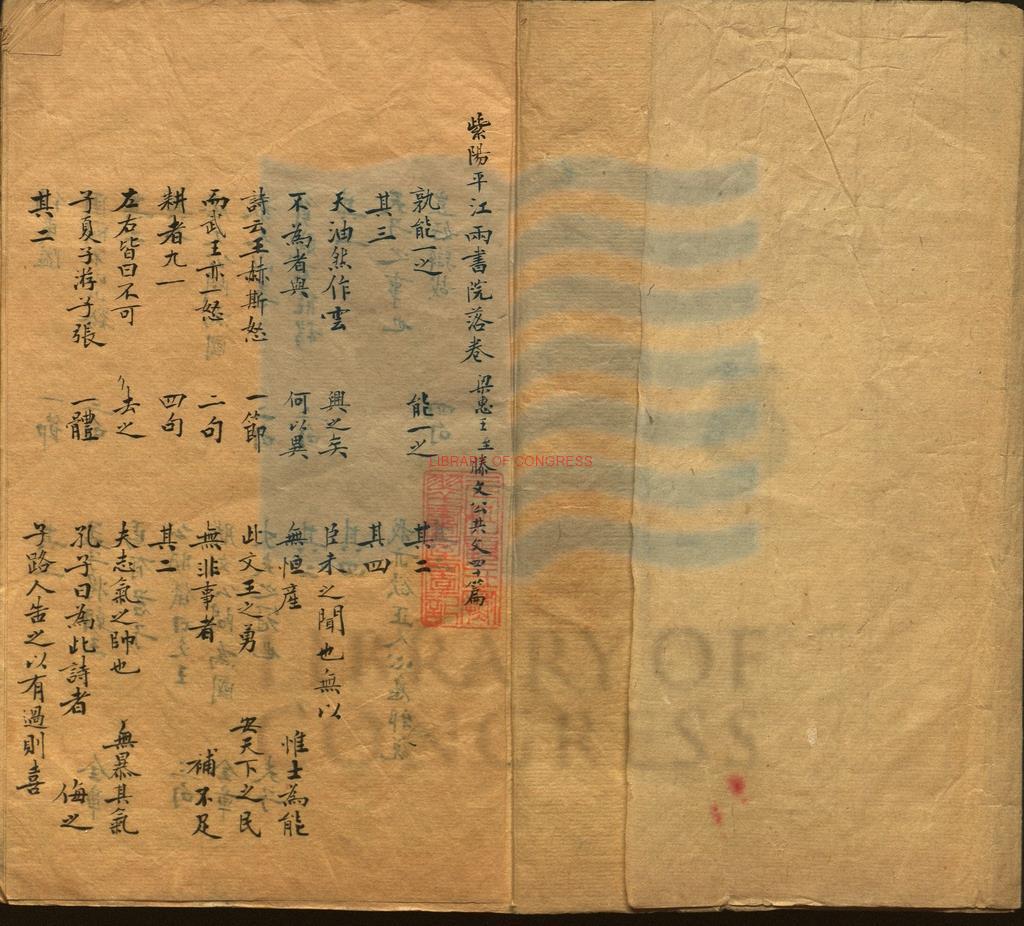 紫陽平江兩書院落卷 梁惠王至滕文公共文四十篇
孰能一之 能一之 其二
其三 其四
天油然作雲 興之矣 臣未之聞也無以
不為者與 何以異 無恒產 惟士為能
詩云王赫斯怒 一節 此文王之勇 安天下之民
而武王亦一怒 二句 無非事者 補不足
耕者九一 四句 其二
左右皆曰不可 去之 夫志氣之帥也 無暴其氣
子夏子游子張 一體 孔子曰為此詩者 侮之
其二 子路人告之以有過則喜
LIBRARY OF CONGRESS